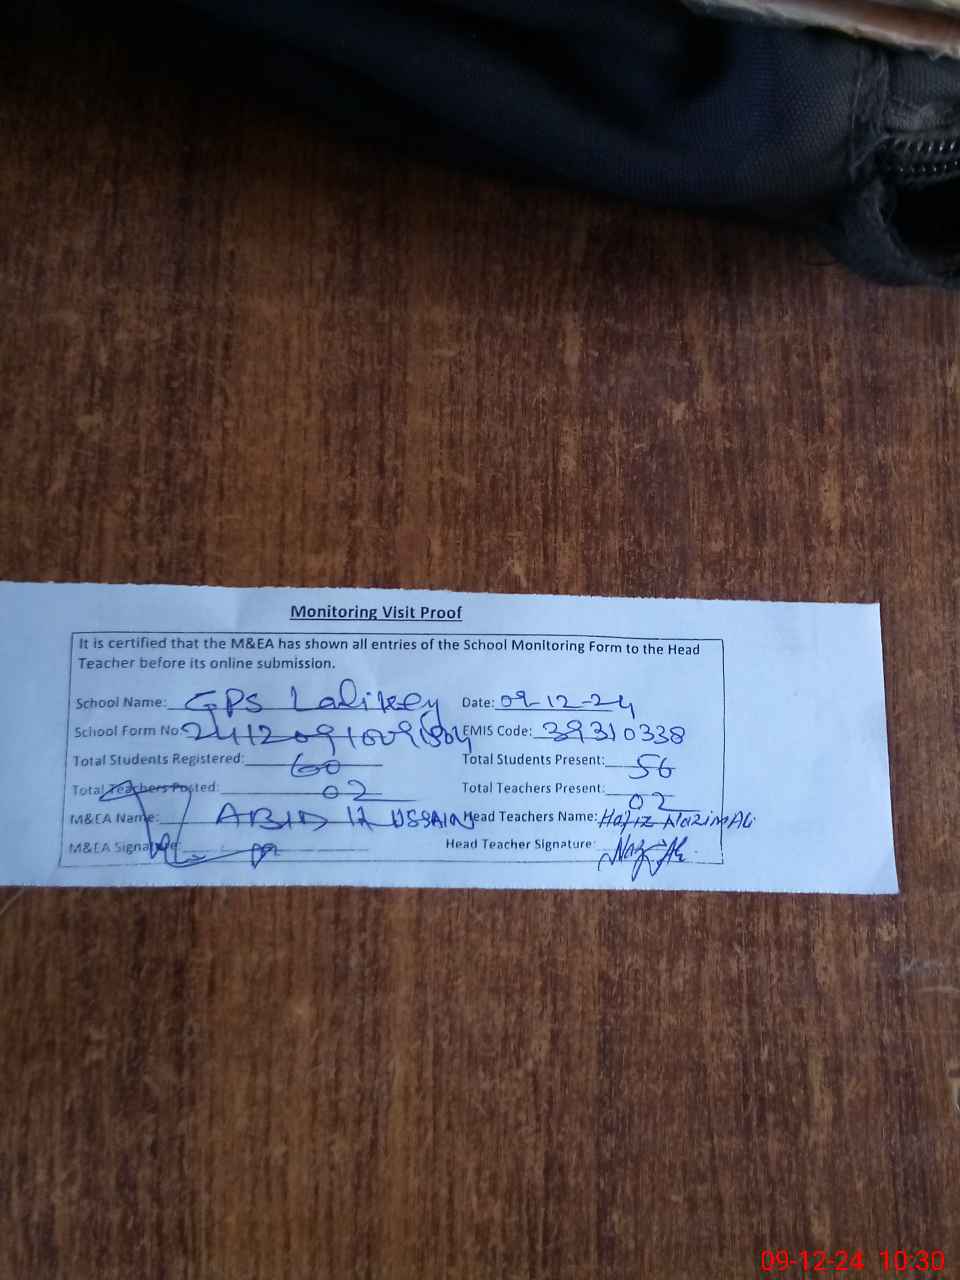 Monitoring Visit Proof
It is certified that the M&EA has shown all entries of the School Monitoring Form to the Head
Teacher before its online submission.
School Name: GPS Lalikey Date: 09-12-24
School Form No: EMIS Code: 39310338
Total Students Registered: 60 Total Students Present: 56
Total Teachers Posted: 02 Total Teachers Present: 02
M&EA Name: ABID HUSSAIN Head Teachers Name: Hafiz Nazim Ali
M&EA Signature: Head Teacher Signature:
09-12-24 10:30